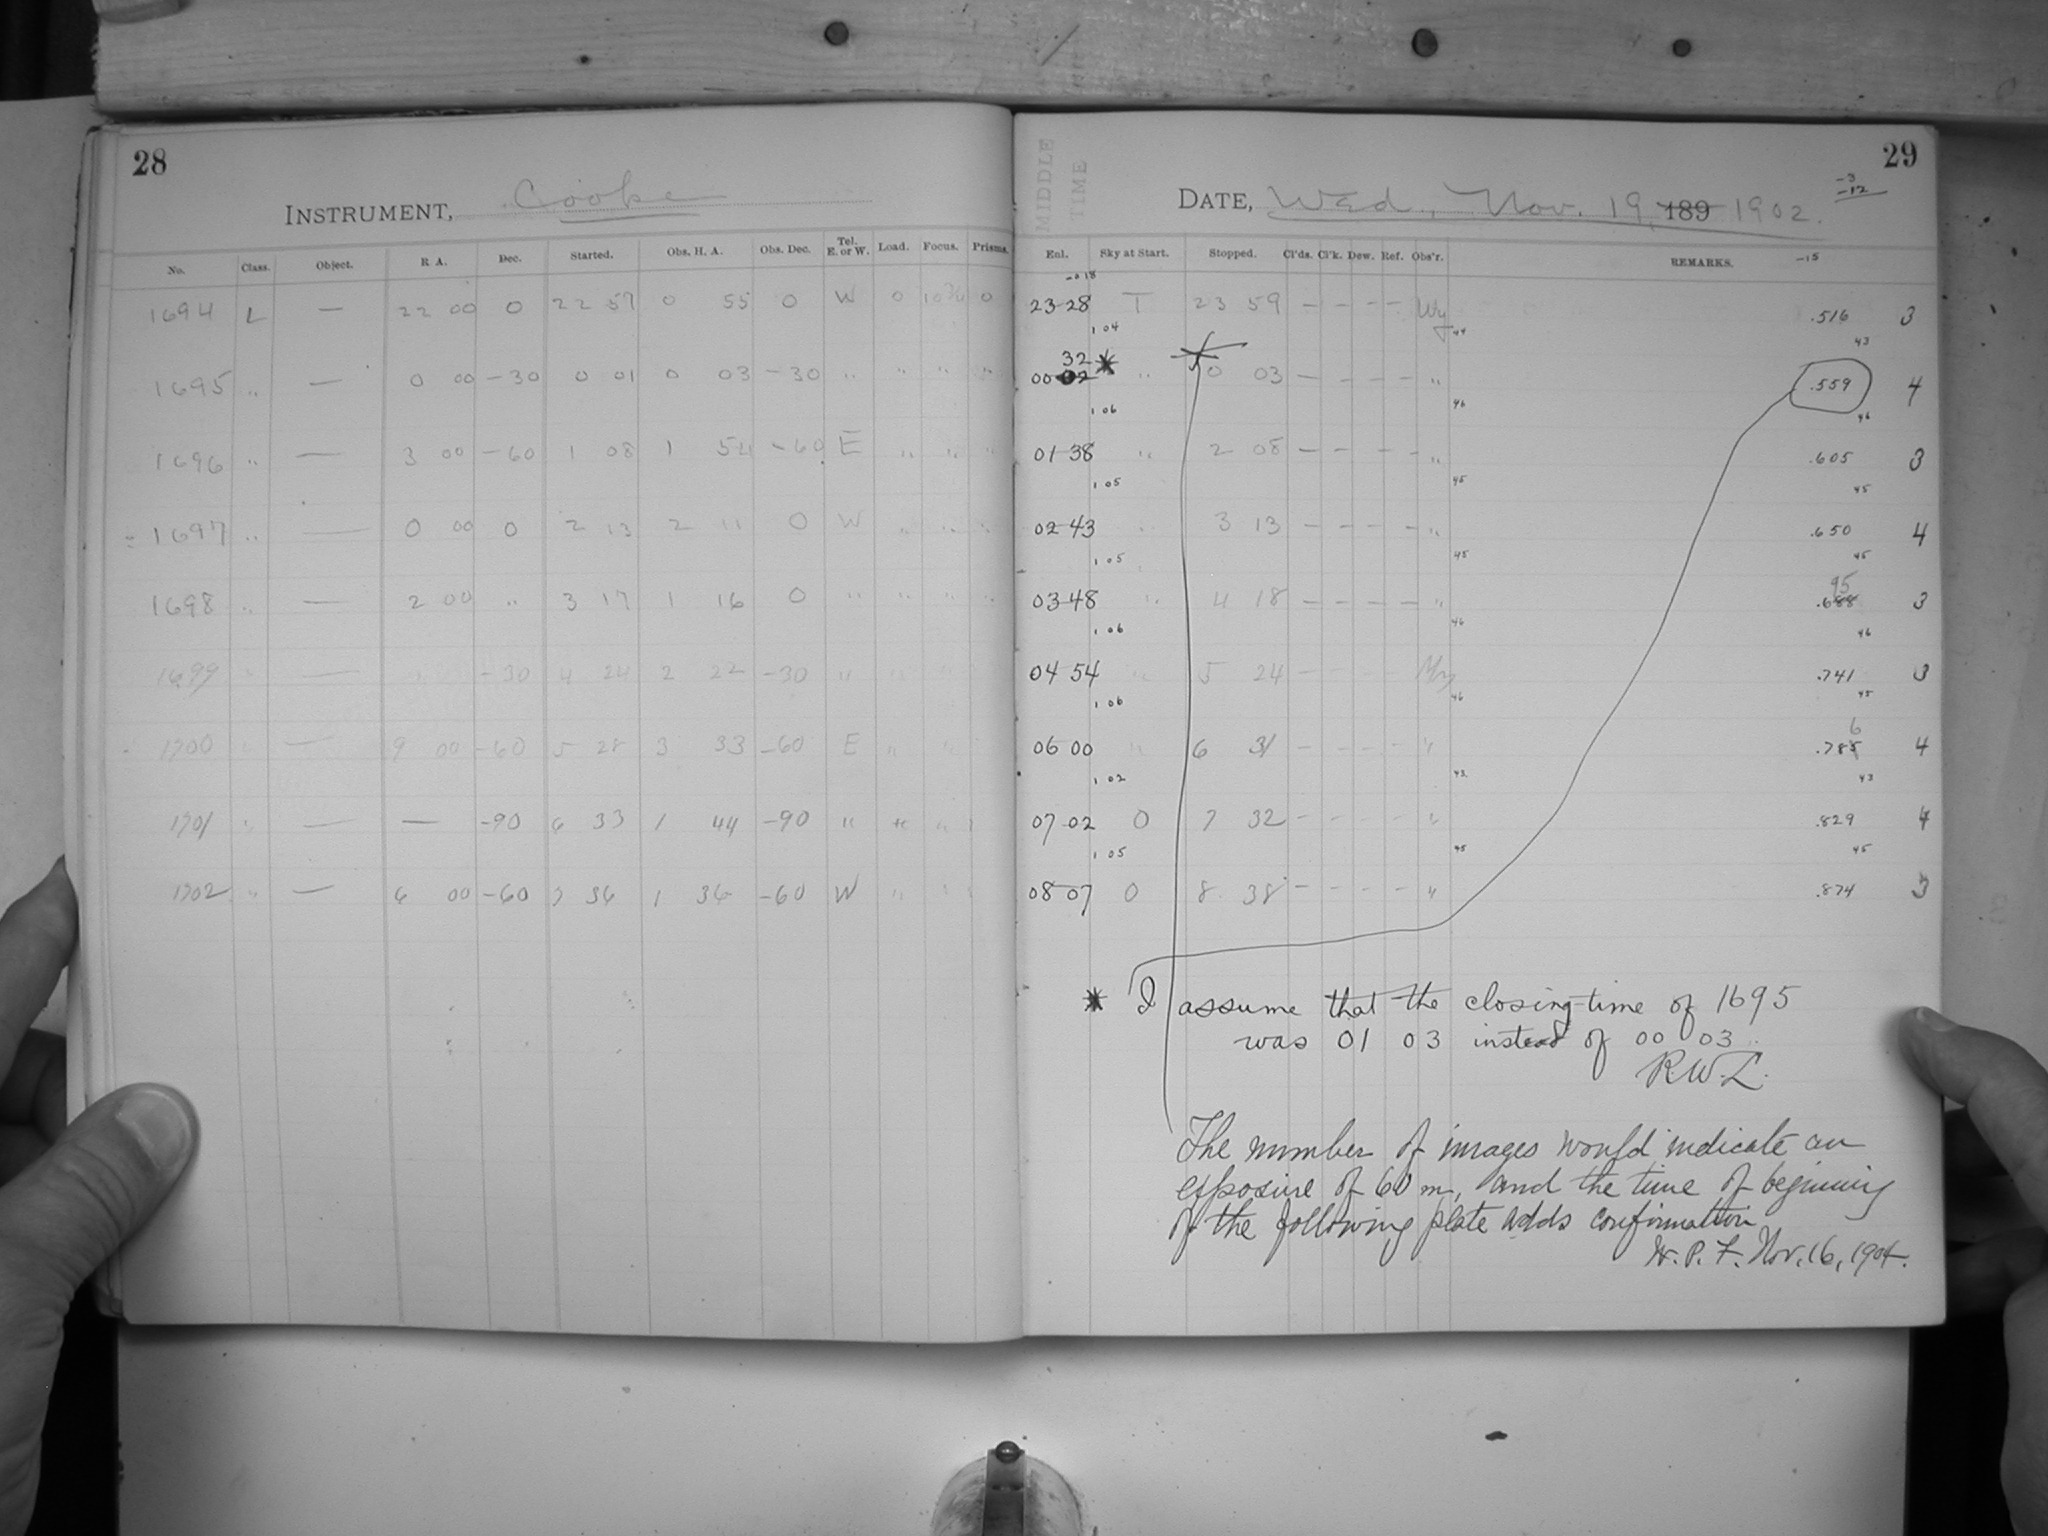 28
INSTRUMENT, Cooke
No. Class. Object. R A. Dec. Started. Obs. H. A. Obs. Dec. Tel. E. or W. Load. Focus. Prisms.
1694 L — 22 00 0 22 57 0 55 0 W 0 0
1695 " — 0 00 -30 0 01 0 03 -30 " " " "
1696 " — 3 00 -60 1 08 1 54 -60 E " " "
1697 " — 0 00 0 2 13 2 11 0 W " " "
1698 " — 2 00 " 3 17 1 16 0 " " " "
1699 " — " -30 4 24 2 22 -30 " " "
1700 " — 9 00 -60 5 28 3 33 -60 E " "
1701 " — — -90 6 33 1 44 -90 " " "
1702 " — 6 00 -60 7 36 1 36 -60 W " "
29
MIDDLE
TIME
DATE, Wed, Nov. 19, 189 1902.
-3
-12
-15
Enl. Sky at Start. Stopped. Cl'ds. Cl'k. Dew. Ref. Obs'r. REMARKS.
23-28 T 23 59 — — — — .516 3
1 04 43
32
00 02 * " 0 03 — — — — " .559 4
1 06 46 46
01-38 " 2 08 — — — — " .605 3
1 05 45 45
02-43 " 3 13 — — — — " .650 4
1 05 45 45
95
03-48 " 4 18 — — — — " .688 3
1 06 46 46
04 54 " 5 24 — — — — .741 3
1 06 46 45
6
06 00 " 6 31 — — — — " .785 4
1 02 43 43
07-02 0 7 32 — — — — " .829 4
1 05 45 45
08-07 0 8 38 — — — — " .874 3
* I assume that the closing-time of 1695
was 01 03 instead of 00 03.
R.W.L.
The number of images would indicate an
exposure of 60 m, and the time of beginning
of the following plate adds confirmation
W. P. F. Nov. 16, 1904.